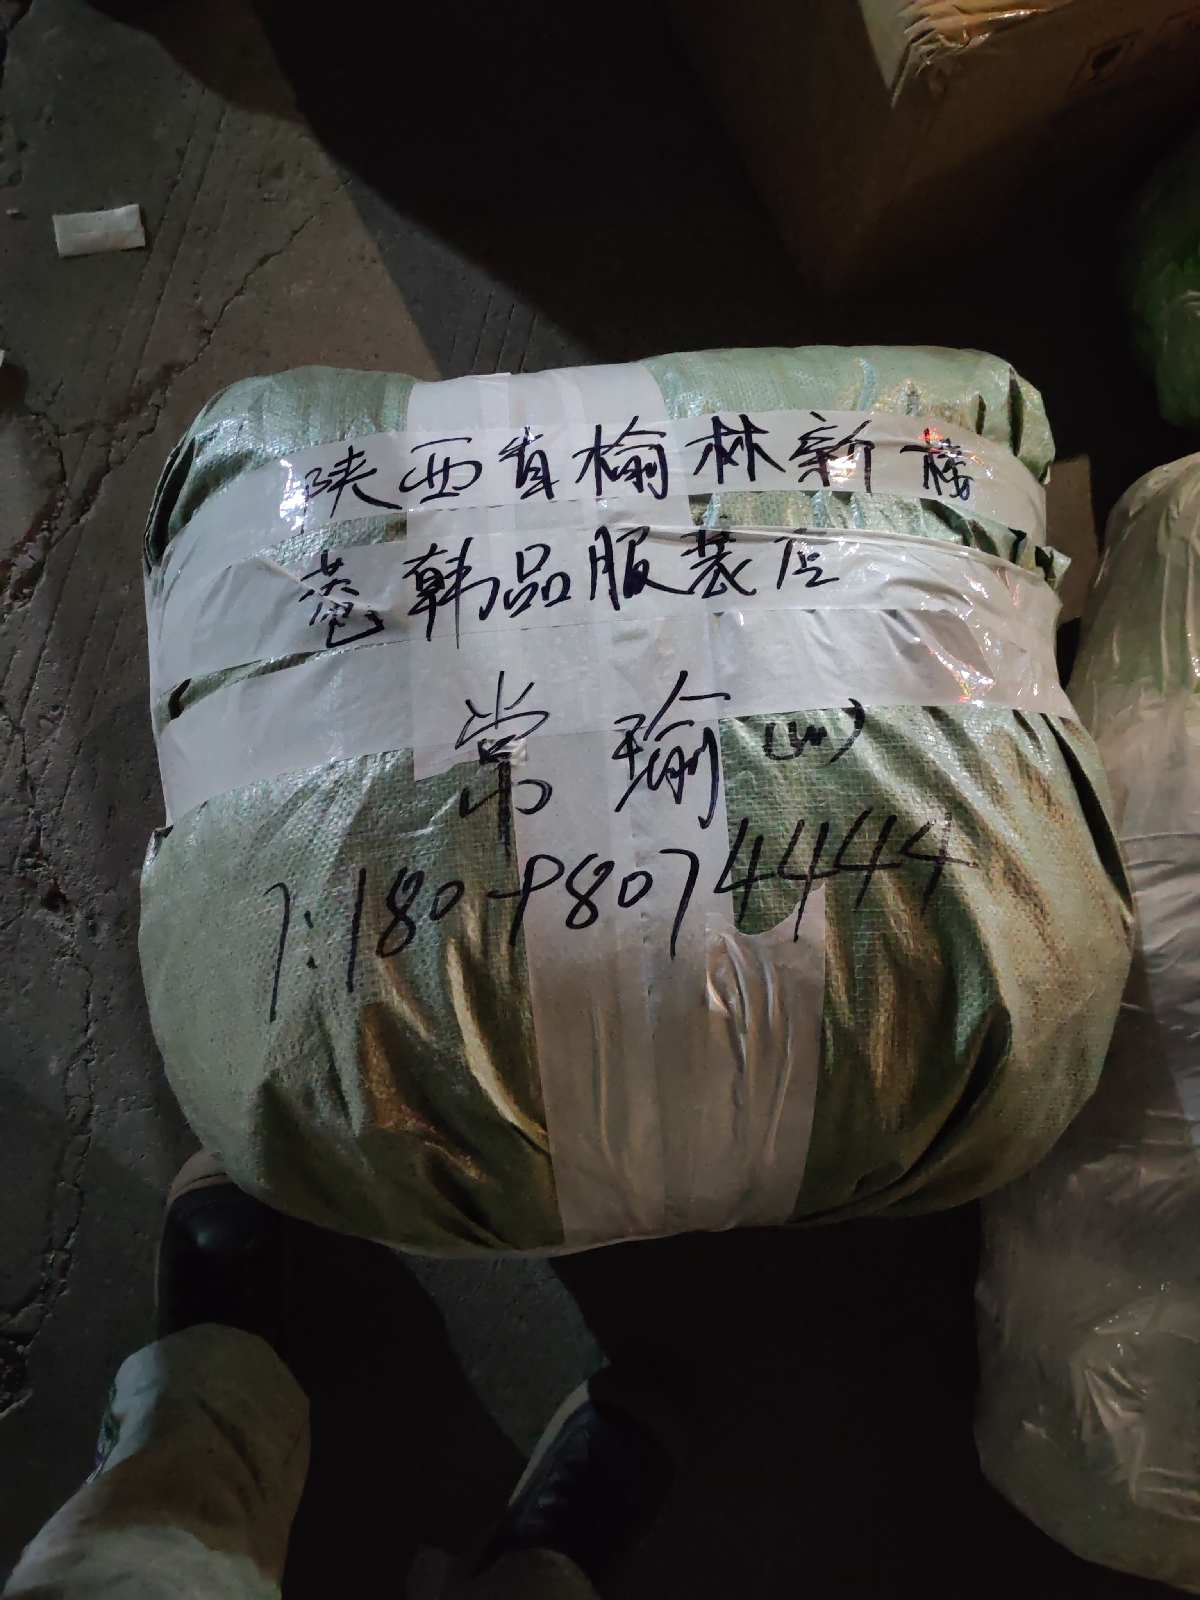 陕西省榆林新楼
巷韩品服装店
常瑜(山)
T:18098074444